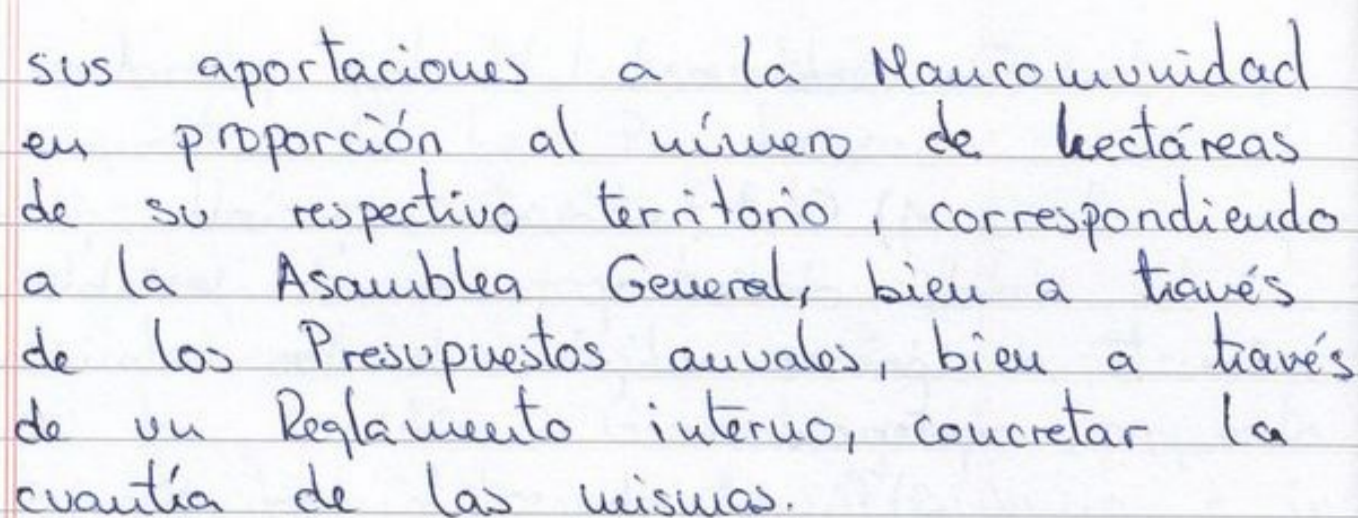 sus aportaciones a la Mancomunidad
en proporción al número de hectáreas
de su respectivo territorio, correspondiendo
a la Asamblea General, bien a través
de los Presupuestos anuales, bien a través
de un Reglamento interno, concretar la
cuantía de las mismas.